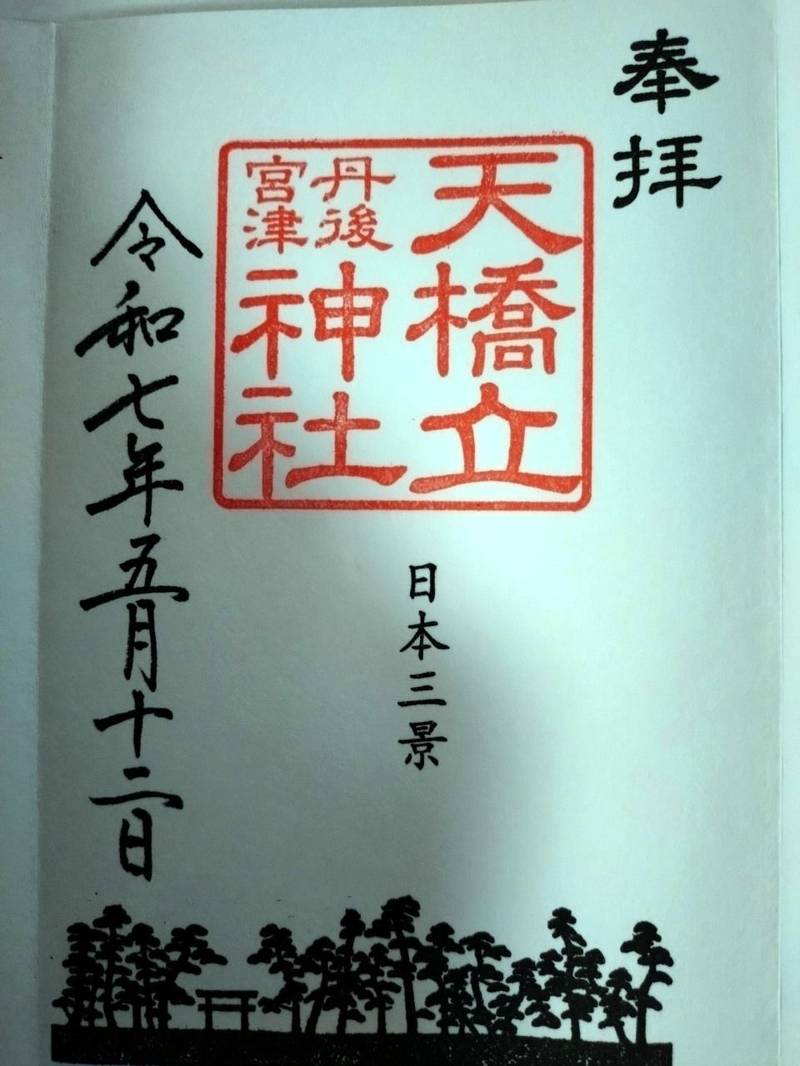 奉拝
天橋立
丹後
宮津
神社
日本三景
令和七年五月十二日